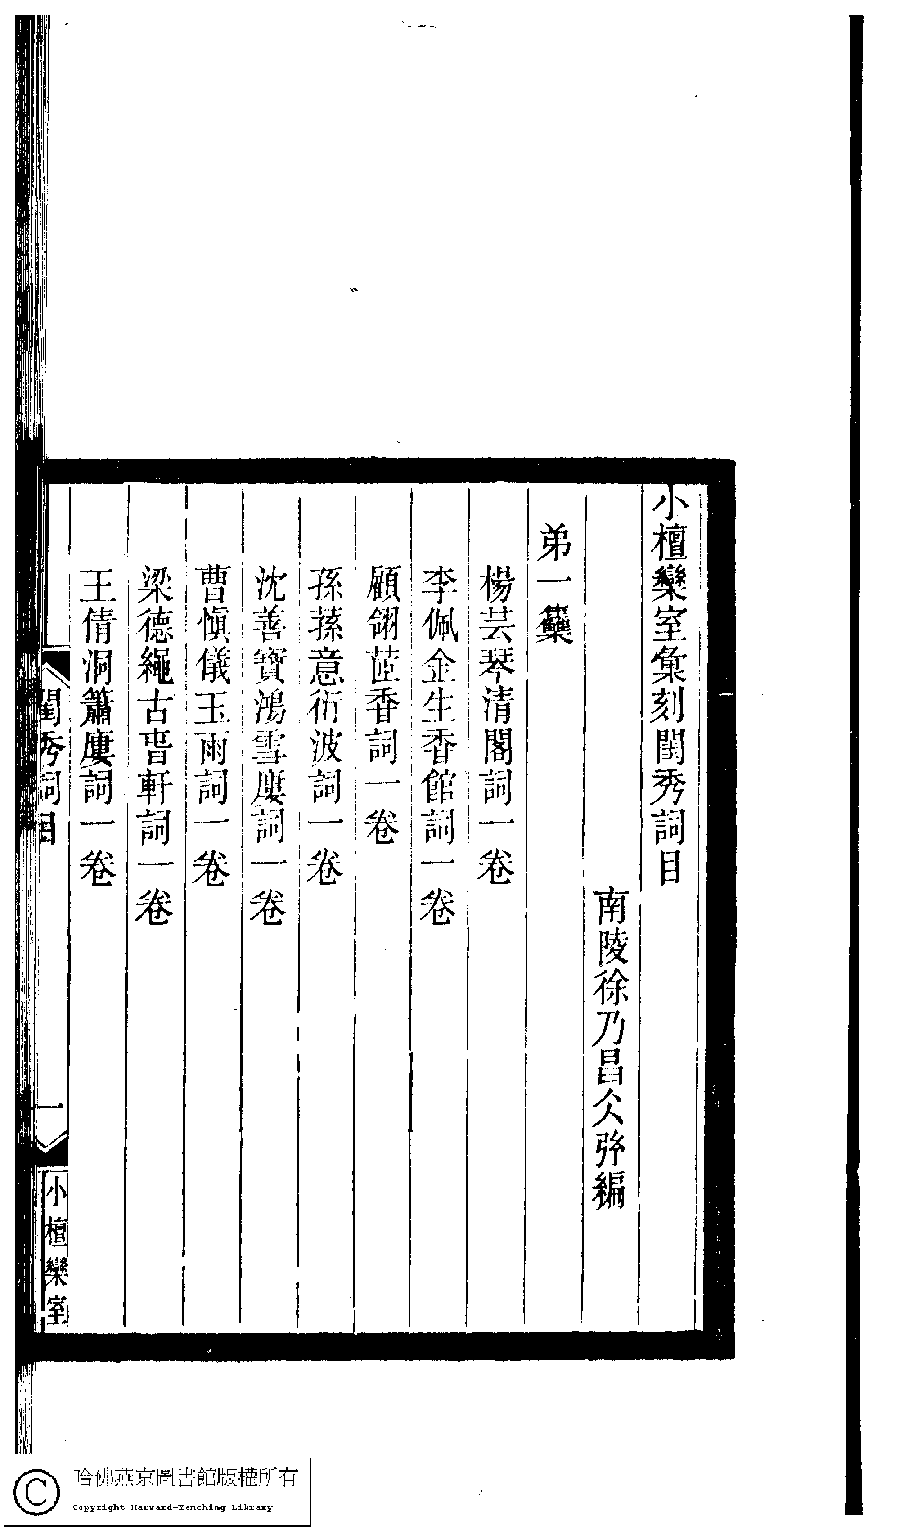 小檀欒室彙刻閨秀詞目
南陵徐乃昌仌弜編
弟一集
楊芸琴清閣詞一卷
李佩金生香館詞一卷
顧翎茝香詞一卷
孫蓀意衍波詞一卷
沈善寶鴻雪廔詞一卷
曹愼儀玉雨詞一卷
梁德繩古春軒詞一卷
王倩洞簫廔詞一卷
閨秀詞目
一
小檀欒室
哈佛燕京圖書館版權所有
Copyright Harvard-Yenching Library